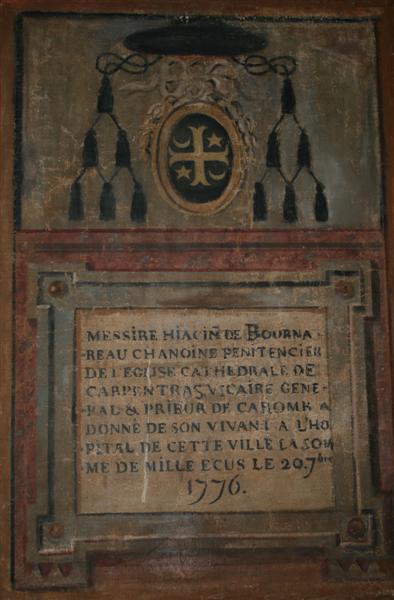 MESSIRE HIACIN̄ DE BOURNA
REAU CHANOINE PENITENCIER
DE L'EGLISE CATHEDRALE DE
CARPENTRAS VICAIRE GENE-
RAL & PRIEUR DE CAROMB A
DONNÉ DE SON VIVANT A L'HO
PITAL DE CETTE VILLE LA SOM
ME DE MILLE ECUS LE 20.7bre
1776.